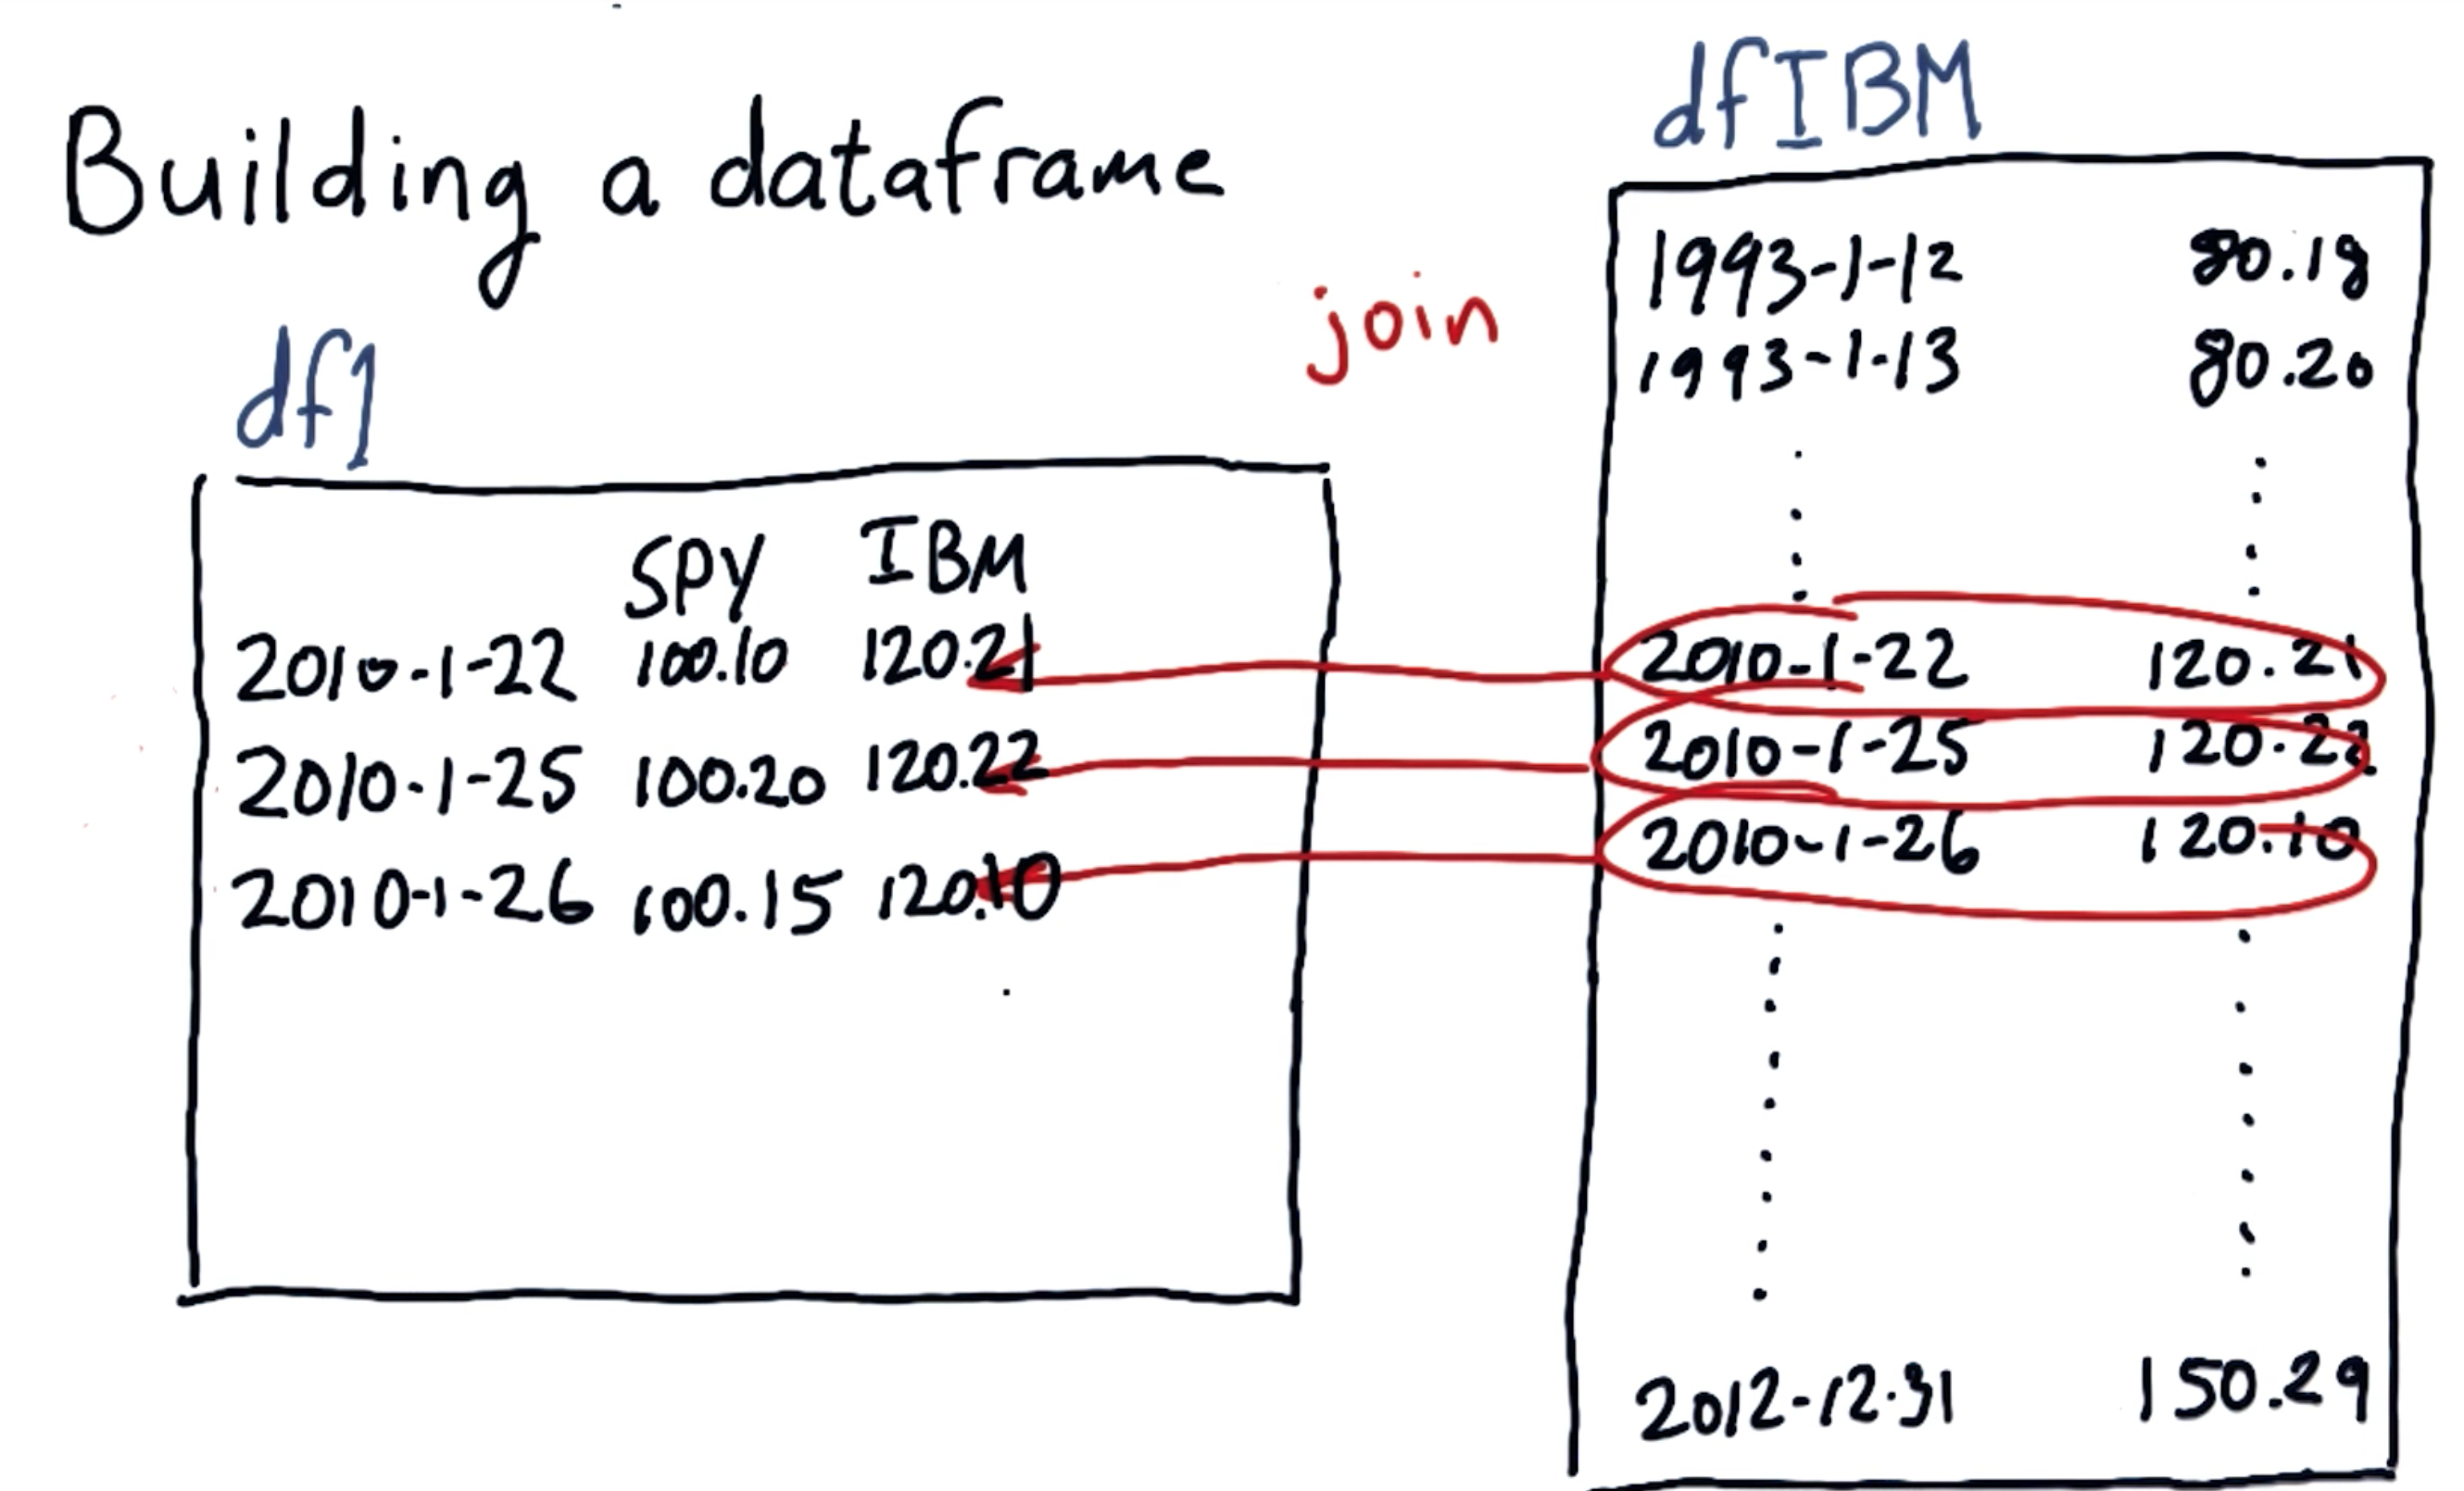 Building a dataframe
join
df1
SPY IBM
2010-1-22 100.10 120.21
2010-1-25 100.20 120.22
2010-1-26 100.15 120.10
dfIBM
1993-1-12 80.18
1993-1-13 80.20
2010-1-22 120.21
2010-1-25 120.22
2010-1-26 120.10
2012-12-31 150.29